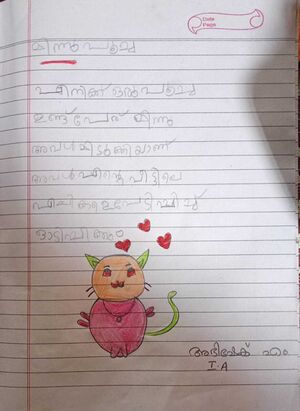 Date
Page
മിന്നുപൂച്ച
എനിക്ക് ഒരു പൂച്ച
ഉണ്ട് പേര് മിന്നു
അവൾ മിടുക്കിയാണ്
അവൾ എന്റെ വീട്ടിലെ
എലികളെ പേടിപ്പിച്ച്
ഓടിപ്പിക്കും
അഭിഷേക് എം
I.A